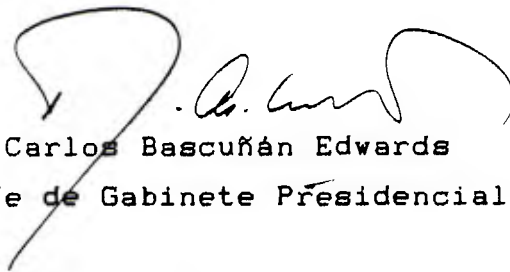 Carlos Bascuñán Edwards
e de Gabinete Presidencial